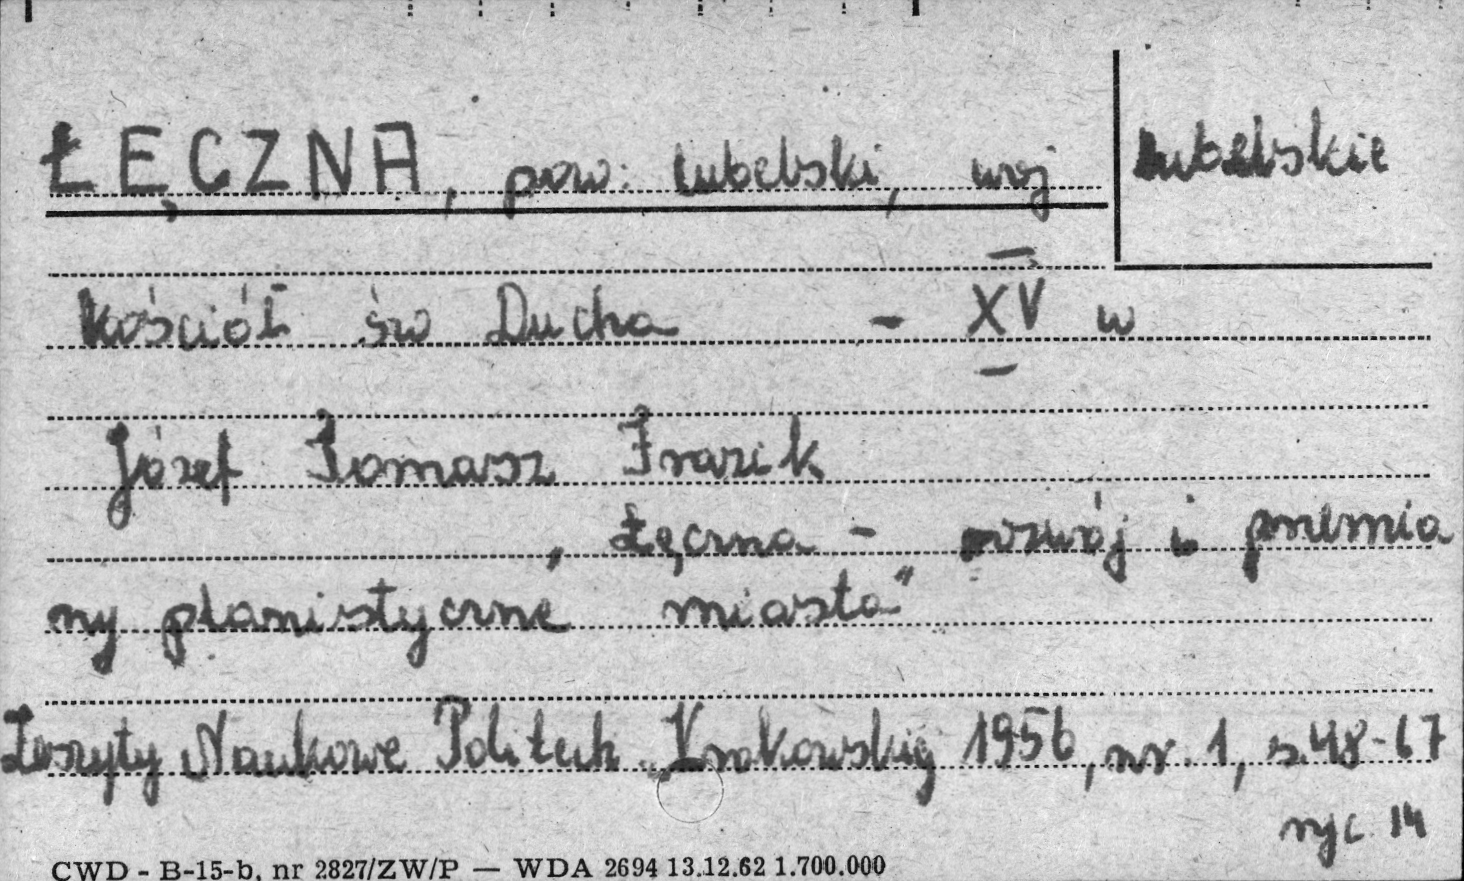 ŁĘCZNA, pow. lubelski, woj lubelskie
Kościół św Ducha - XV w
Józef Tomasz Frazik
„Łęczna - rozwój i przemia
ny planistyczne miasta"
Zeszyty Naukowe Politech. Krakowskiej 1956, nr. 1, s. 48-67
ryc 14
CWD - B-15-b, nr 2827/ZW/P — WDA 2694 13.12.62 1.700.000